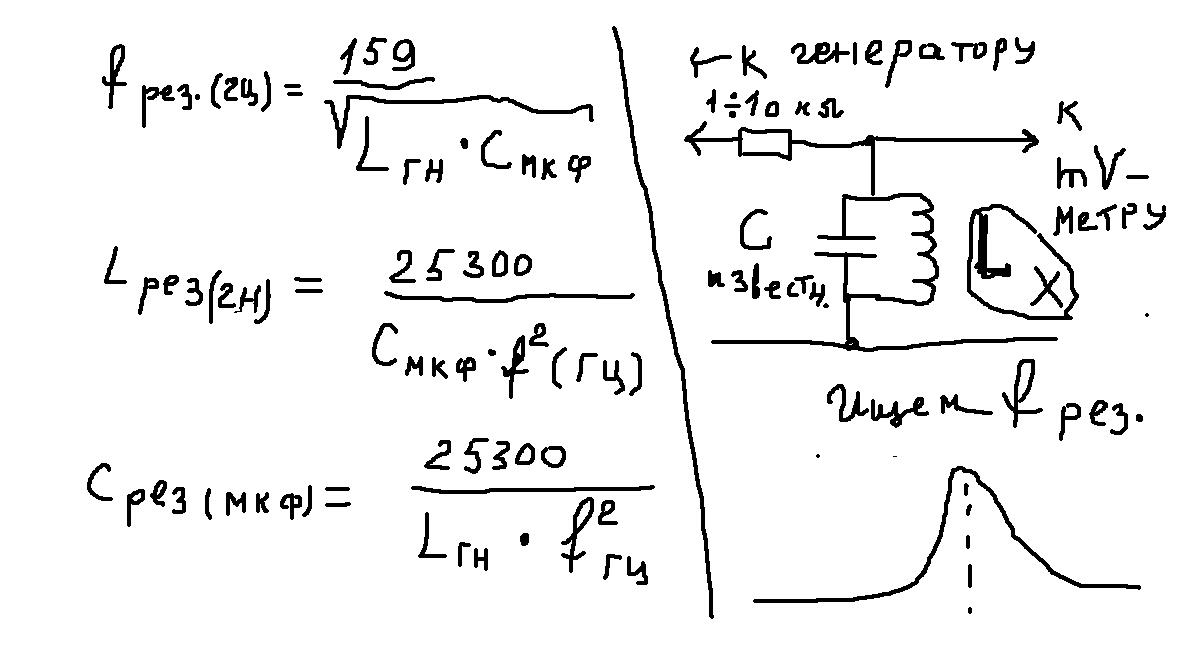 f рез.(гц) = 159
√ L ГН · C МКФ
L рез(гн) = 25300
C МКФ · f² (ГЦ)
C рез(МКФ) = 25300
L ГН · f² ГЦ
← К генератору
1÷10 кΩ
К
mV-
МЕТРУ
C
известн.
L X
Ищем f рез.